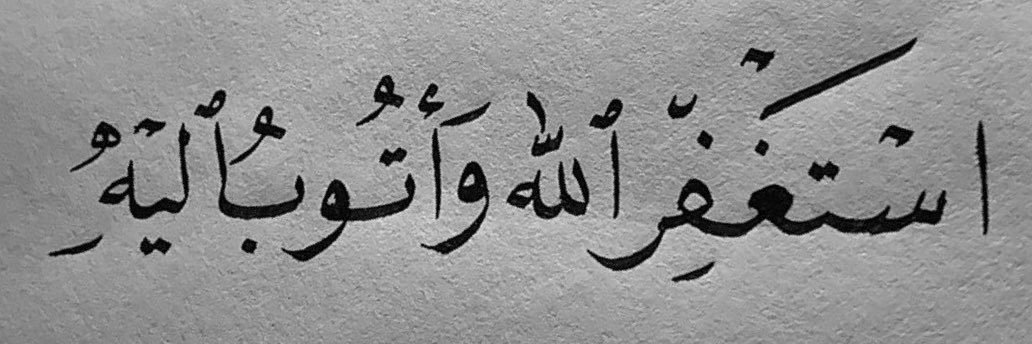 اسْتَغْفِرْ ٱللّٰه وَأَتُوبُ ٱلَيْهُ